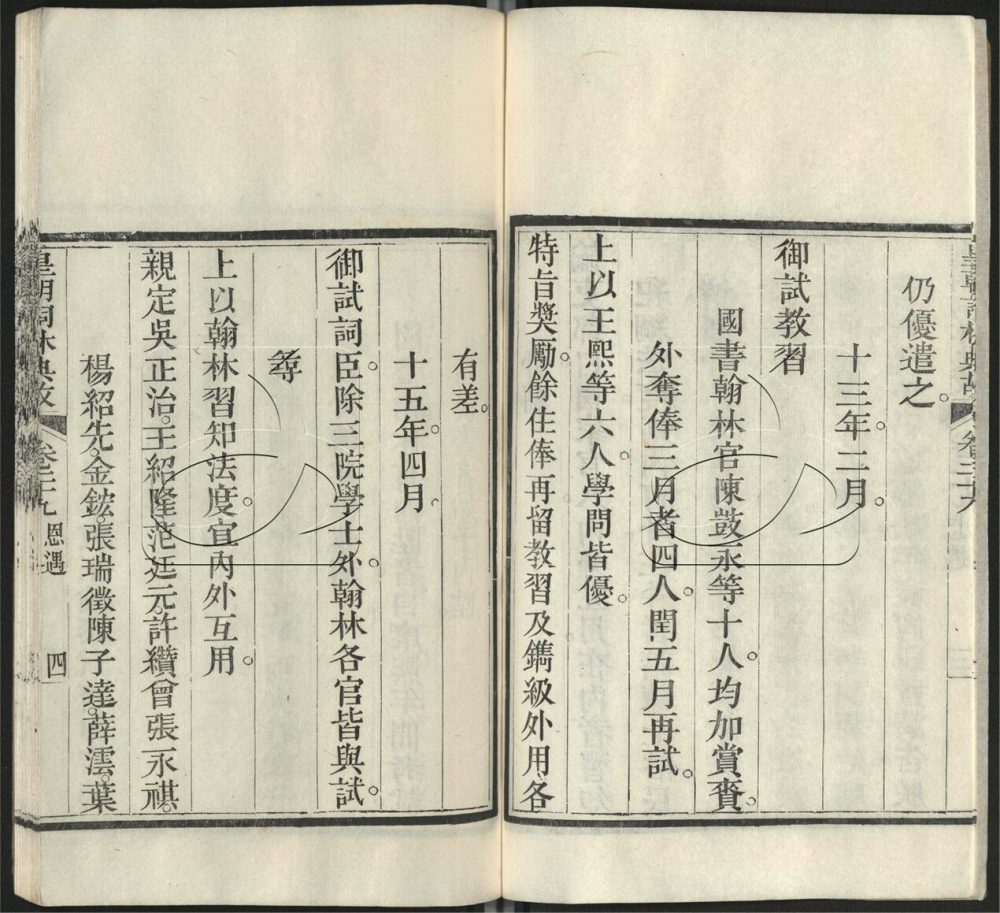 仍優遣之。
十三年二月。
御試教習
國書翰林官陳敱永等十人。均加賞賚。
外奪俸三月者四人。閏五月再試。
上以王熙等六人。學問皆優。
特旨奬勵。餘住俸再留教習。及鐫級外用。各
有差。
十五年四月。
御試詞臣。除三院學士外。翰林各官皆與試。
等
上以翰林習知法度。宜內外互用。
親定吳正治。王紹隆。范廷元。許纘曾。張永祺。
楊紹先。金鋐。張瑞徵。陳子達。薛澐。葉
皇朝詞林典故 卷二十九 恩遇 四